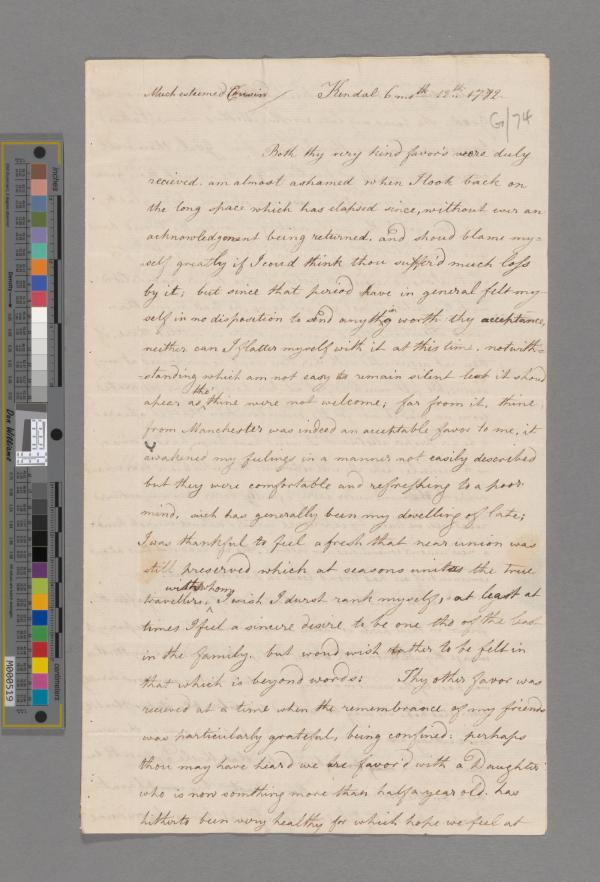 Much esteemed Cousin / Kendal 6 mth 12th 1792
G/74
Both thy very kind favor's were duly
recieved. am almost ashamed when I look back on
the long space which has elapsed since, without ever an
acknowledgement being returned, and shoud blame my=
self greatly if I coud think thou suffer'd much loss
by it; but since that period have in general felt my
self in no disposition to send any thg worth thy acceptance,
neither can I flatter myself with it at this time. notwith=
=standing which am not easy to remain silent lest it shoud
apear as tho' thine were not welcome; far from it, thine
from Manchester was indeed an acceptable favor to me, it
awakened my feelings in a manner not easily described
but they were comfortable and refreshing to a poor
mind, such has generally been my dwelling of late;
I was thankful to feel afresh that near union was
still preserved which at seasons unites the true
travellers, with whom I wish I durst rank myself, at least at
times I feel a sincere desire to be one tho of the least
in the family. but woud wish rather to be felt in
that which is beyond words: Thy other favor was
recieved at a time when the remembrance of my friends
was particularly grateful, being confined: perhaps
thou may have heard we are favor'd with a Daughter
who is now somthing more than half a year old. has
hitherto been very healthy for which hope we feel at
inches
centimeters
Density
Don Williams
M000519